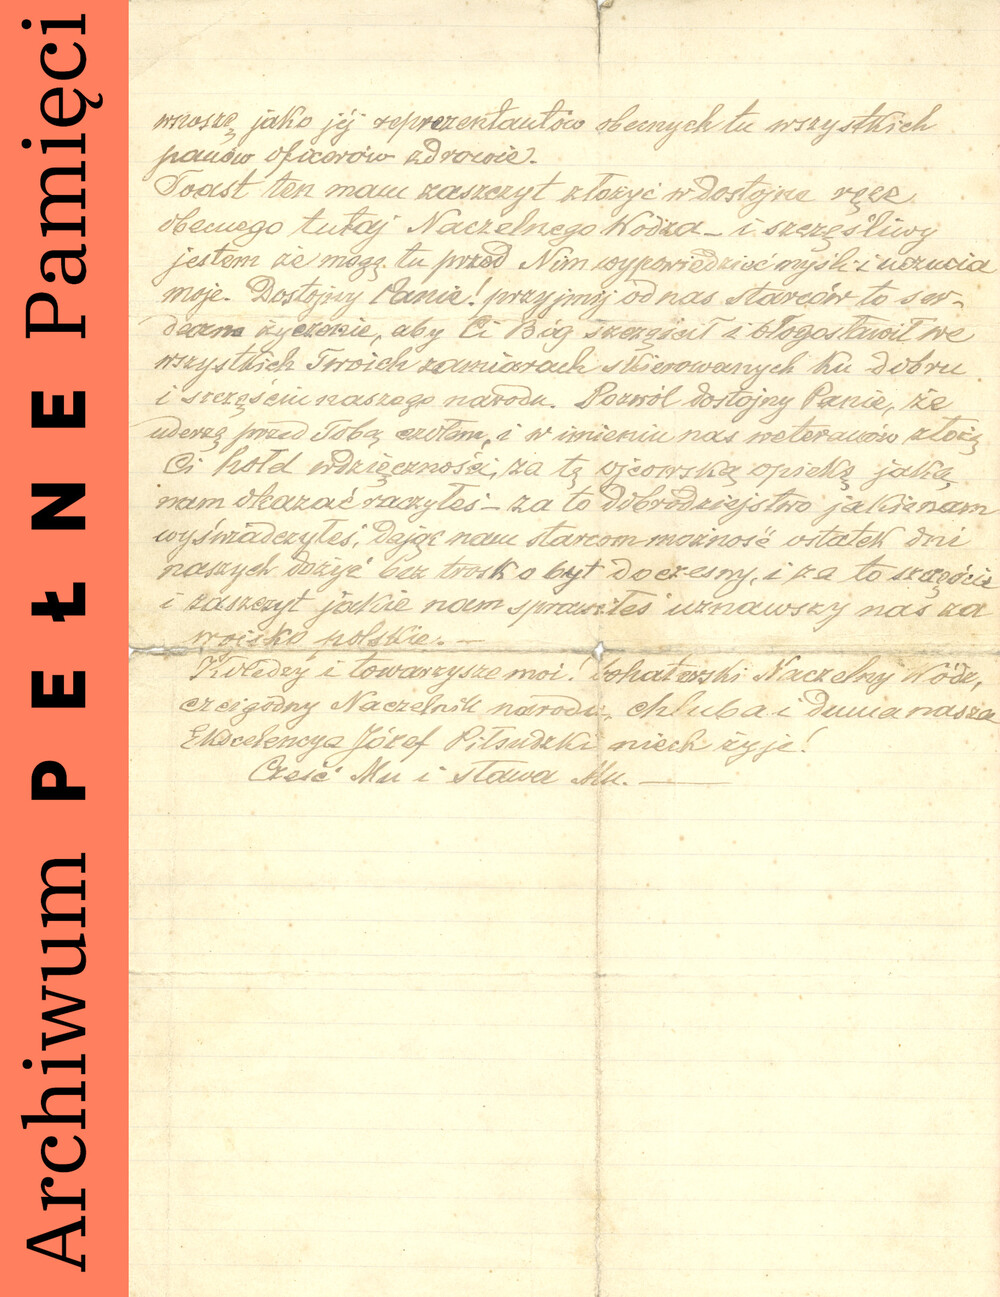 Archiwum PEŁNE Pamięci
wnoszę jako jéj reprezentantów obecnych tu wszystkich
panów oficerów zdrowie.
Toast ten mam zaszczyt złożyć w dostojne ręce
obecnego tutaj Naczelnego Wodza – i szczęśliwy
jestem że mogę tu przed Nim wypowiedzieć myśli i uczucia
moje. Dostojny Panie! przyjmij od nas starców to ser-
deczne życzenie, aby Ci Bóg szczęścił i błogosławił we
wszystkich Twoich zamiarach skierowanych ku dobru
i szczęściu naszego narodu. Pozwól dostojny Panie, że
uderzę przed Tobą czołem, i w imieniu nas weteranów złożę
Ci hołd wdzięczności, za tę ojcowską opiekę jaką
nam okazać raczyłeś – za to dobrodziejstwo jakie nam
wyświadczyłeś, dając nam starcom możność ostatek dni
naszych dożyć bez trosk o byt doczesny, i za to szczęście
i zaszczyt jakie nam sprawiłeś uznawszy nas za
wojsko polskie. –
Koledzy i towarzysze moi! bohaterski Naczelny Wódz,
czcigodny Naczelnik narodu, chluba i duma nasza
Ekscelencya Józef Piłsudzki niech żyje!
Cześć Mu i sława Mu. –